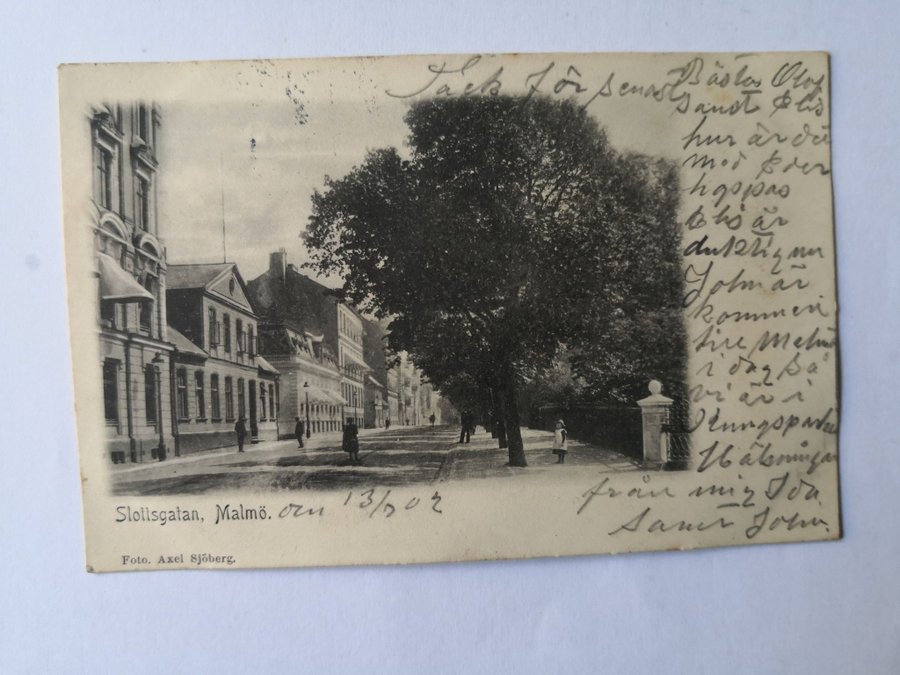 Tack för senast
Bästa Olof
samt Elis
hur är dä
med Eder
hopas
Elis är
duktig nu
John är
kommen
till Malmö
i dag så
vi är i
Kungsparken
Hälsningar
från mig Ida
Samt John.
Slottsgatan, Malmö. den 13/7 02
Foto. Axel Sjöberg.